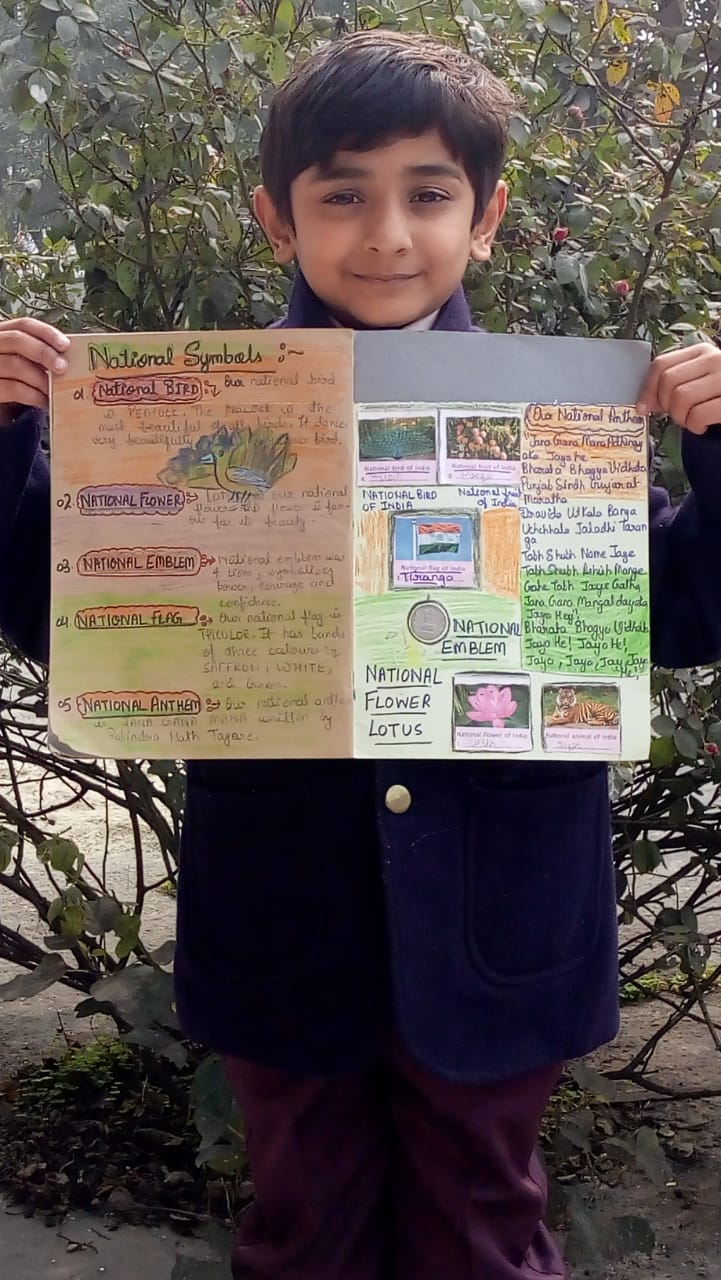 National Symbols :~
01 National BIRD :~ Our national bird
is PEACOCK. The peacock is the
most beautiful of all birds. It dances
very beautifully
02. NATIONAL FLOWER :~ LOTUS is our national
flower. The flower is fam-
ous for its beauty.
03. NATIONAL EMBLEM :~ National emblem was
4 lions, symbolizes
power, courage and
confidence.
04. NATIONAL FLAG :~ Our national flag is
TRICOLOR. It has bands
of three colours :~
SAFFRON, WHITE,
and Green.
05 NATIONAL ANTHEM :~ Our national anthem
is JANA GANA MANA written by
Rabindra Nath Tagore.
National bird of India
National fruit of India
NATIONAL BIRD
OF INDIA
National fruit
of India
National flag of India
Tiranga
NATIONAL
EMBLEM
NATIONAL
FLOWER
LOTUS
National flower of India
National animal of India
Our National Anthem
"Jana Gana Mana Adhinay
aka Jaya he
Bharata Bhagya Vidhata
Punjab Sindh Gujarat
Maratha
Dravida Utkala Banga
Uchchhala Jaladhi Taran
ga
Tabh Shubh Name Jage
Tabh Shubh Ashish Mange
Gahe Tabh Jaya Gatha
Jana Gana Mangal dayaka
Jaya Hey!
Bharata Bhagya Vidhata
Jaya He! Jaya He!
Jaya, Jaya, Jay, Jaya
He!